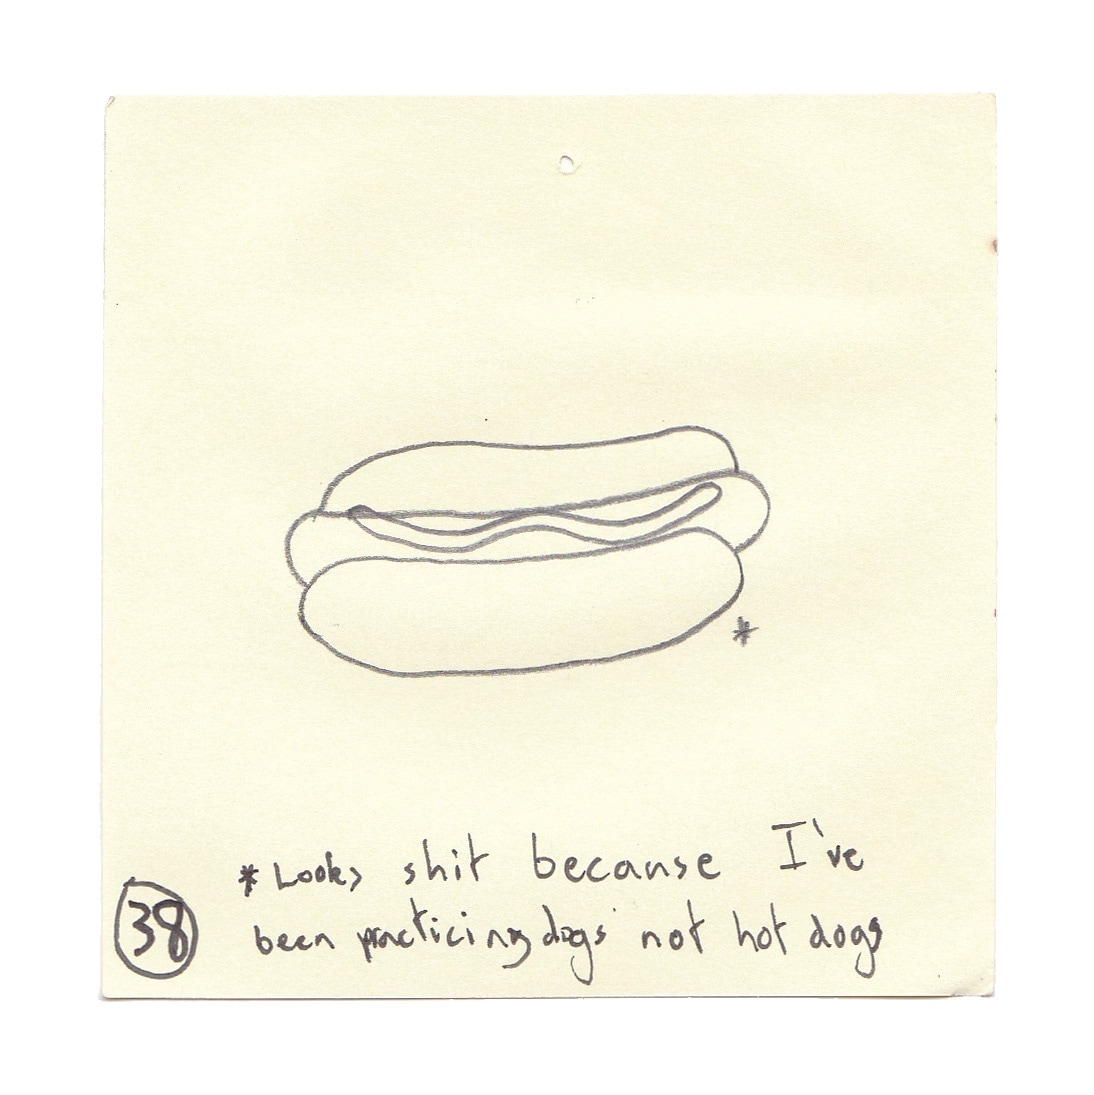 *
* Looks shit because I've
been practicing dogs not hot dogs
38